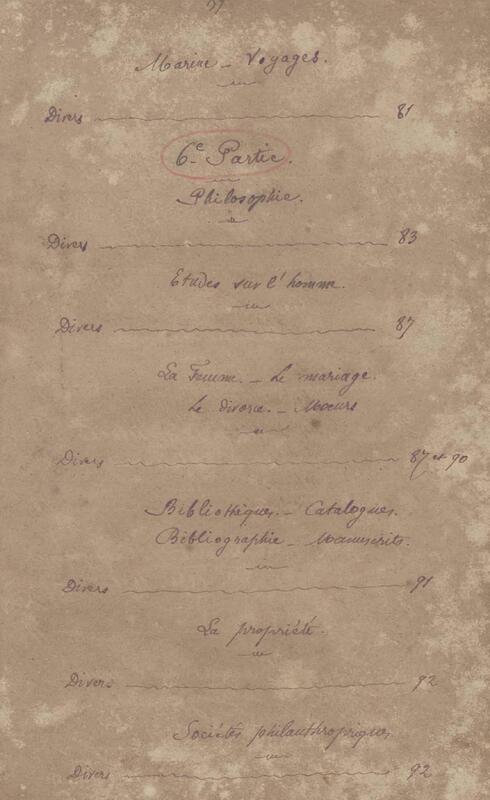 Marine - Voyages.
Divers 81
6e Partie.
Philosophie.
Divers 83
Etudes sur l'homme.
Divers 87
La Femme. - Le mariage.
Le divorce. - Moeurs
Divers 87 et 90
Bibliothèques. - Catalogues.
Bibliographie - Manuscrits.
Divers 91
La propriété.
Divers 92
Sociétés philanthropiques
Divers 92